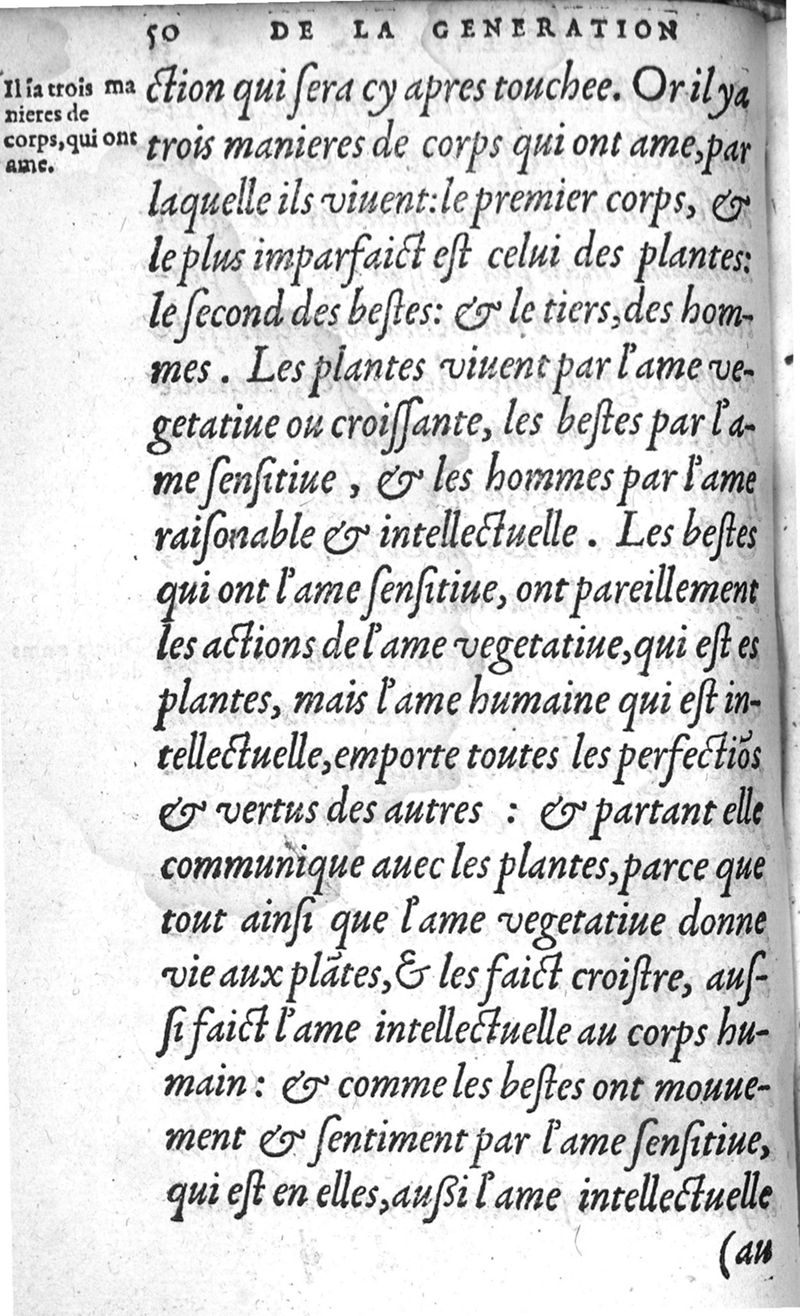 50 DE LA GENERATION
Il ia trois ma
nieres de
corps, qui ont
ame.
ction qui ſera cy apres touchee. Or il ya
trois manieres de corps qui ont ame, par
laquelle ils viuent: le premier corps, &
le plus imparfaict eſt celui des plantes:
le ſecond des beſtes: & le tiers, des hom-
mes. Les plantes viuent par l'ame ve-
getatiue ou croiſſante, les beſtes par l'a-
me ſenſitiue, & les hommes par l'ame
raiſonable & intellectuelle. Les beſtes
qui ont l'ame ſenſitiue, ont pareillement
les actions de l'ame vegetatiue, qui eſt es
plantes, mais l'ame humaine qui eſt in-
tellectuelle, emporte toutes les perfectiõs
& vertus des autres : & partant elle
communique auec les plantes, parce que
tout ainſi que l'ame vegetatiue donne
vie aux plãtes, & les faict croiſtre, auſ-
ſi faict l'ame intellectuelle au corps hu-
main: & comme les beſtes ont mouue-
ment & ſentiment par l'ame ſenſitiue,
qui eſt en elles, auſsi l'ame intellectuelle
(au